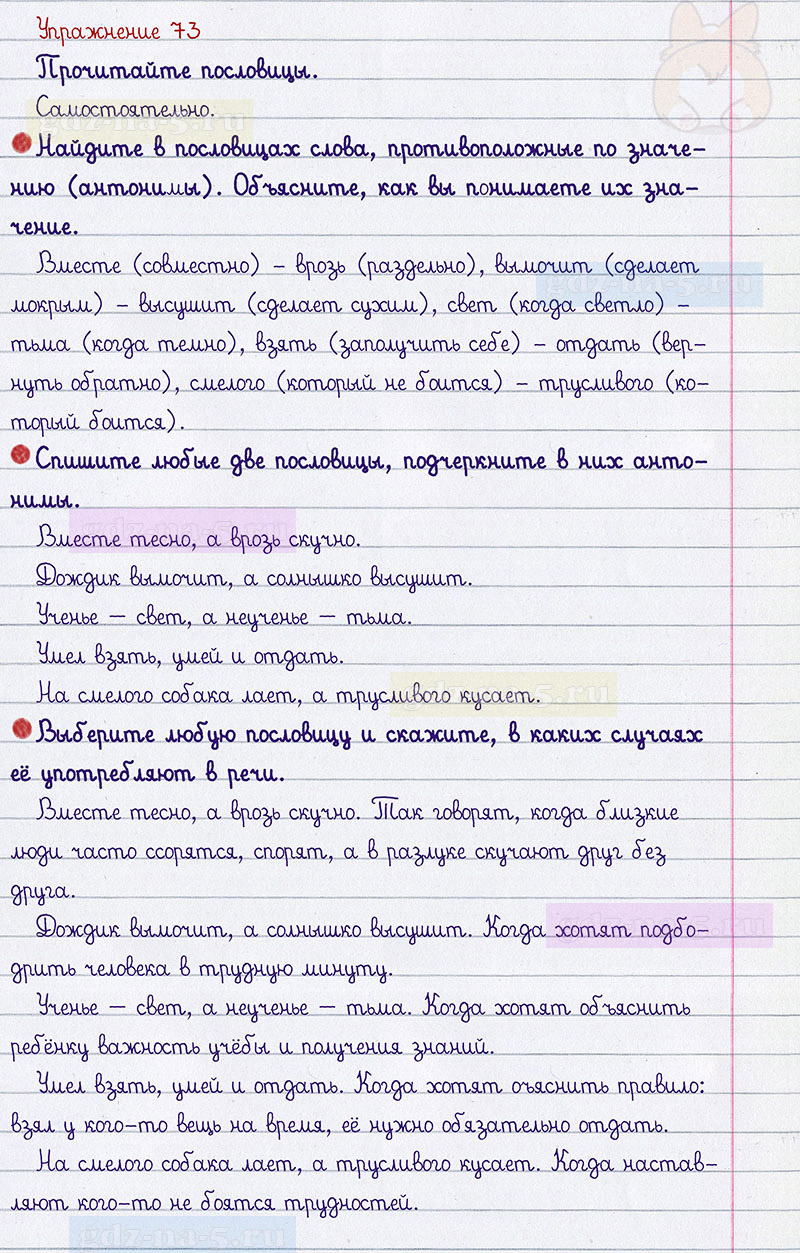 Упражнение 73
Прочитайте пословицы.
Самостоятельно.
gdz-na-5.ru
Найдите в пословицах слова, противоположные по значе-
нию (антонимы). Объясните, как вы понимаете их зна-
чение.
Вместе (совместно) – врозь (раздельно), вымочит (сделает
gdz-na-5.ru
мокрым) – высушит (сделает сухим), свет (когда светло) –
тьма (когда темно), взять (заполучить себе) – отдать (вер-
нуть обратно), смелого (который не боится) – трусливого (ко-
торый боится).
Спишите любые две пословицы, подчеркните в них анто-
нимы.
gdz-na-5.ru
Вместе тесно, а врозь скучно.
Дождик вымочит, а солнышко высушит.
Ученье – свет, а неученье – тьма.
Умел взять, умей и отдать.
На смелого собака лает, а трусливого кусает.
gdz-na-5.ru
Выберите любую пословицу и скажите, в каких случаях
её употребляют в речи.
Вместе тесно, а врозь скучно. Так говорят, когда близкие
люди часто ссорятся, спорят, а в разлуке скучают друг без
друга.
Дождик вымочит, а солнышко высушит. Когда хотят подбо-
gdz-na-5.ru
дрить человека в трудную минуту.
Ученье – свет, а неученье – тьма. Когда хотят объяснить
ребёнку важность учёбы и получения знаний.
Умел взять, умей и отдать. Когда хотят оъяснить правило:
взял у кого-то вещь на время, её нужно обязательно отдать.
На смелого собака лает, а трусливого кусает. Когда настав-
ляют кого-то не боятся трудностей.
gdz-na-5.ru